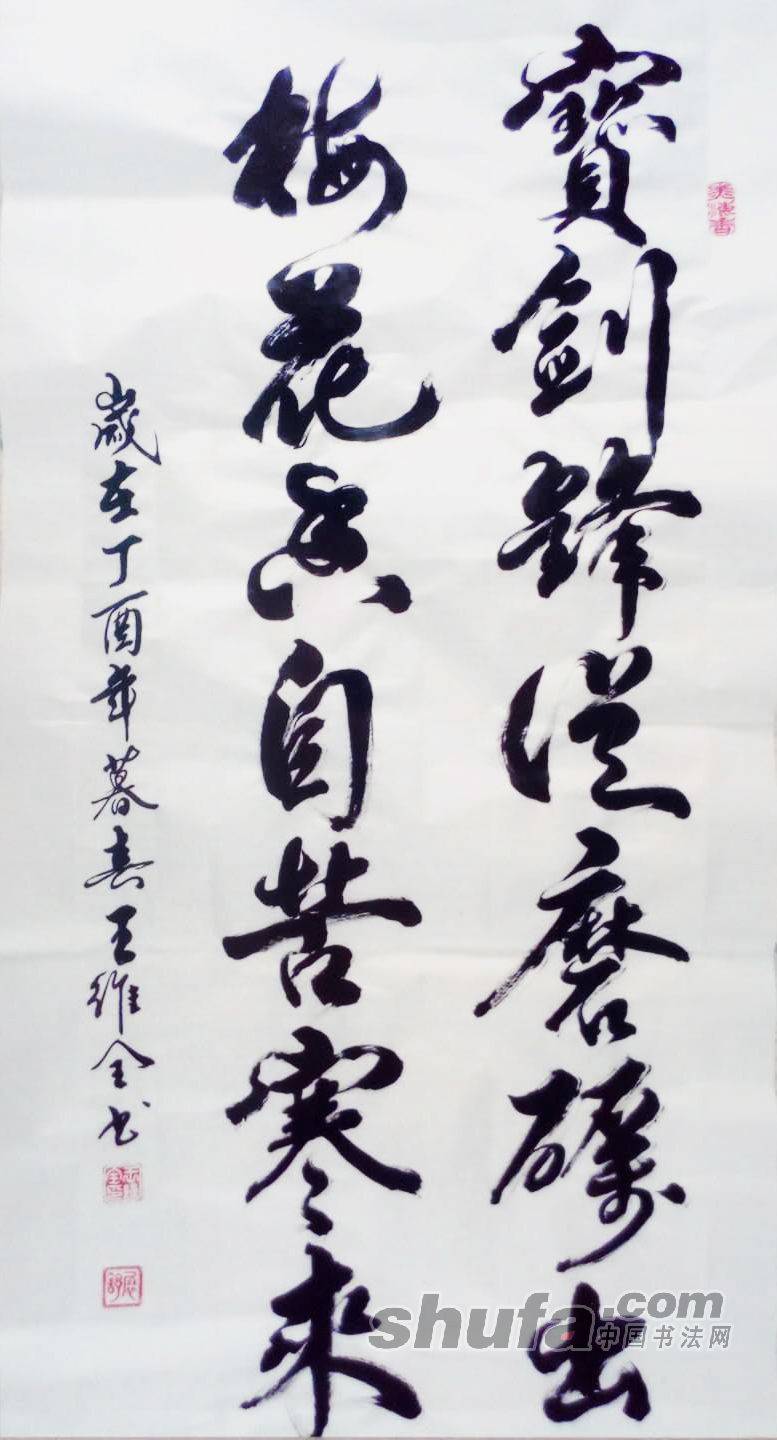 寶劍鋒從磨礪出
梅花香自苦寒來
歲在丁酉年暮春王維全书
shufa.com
中国书法网